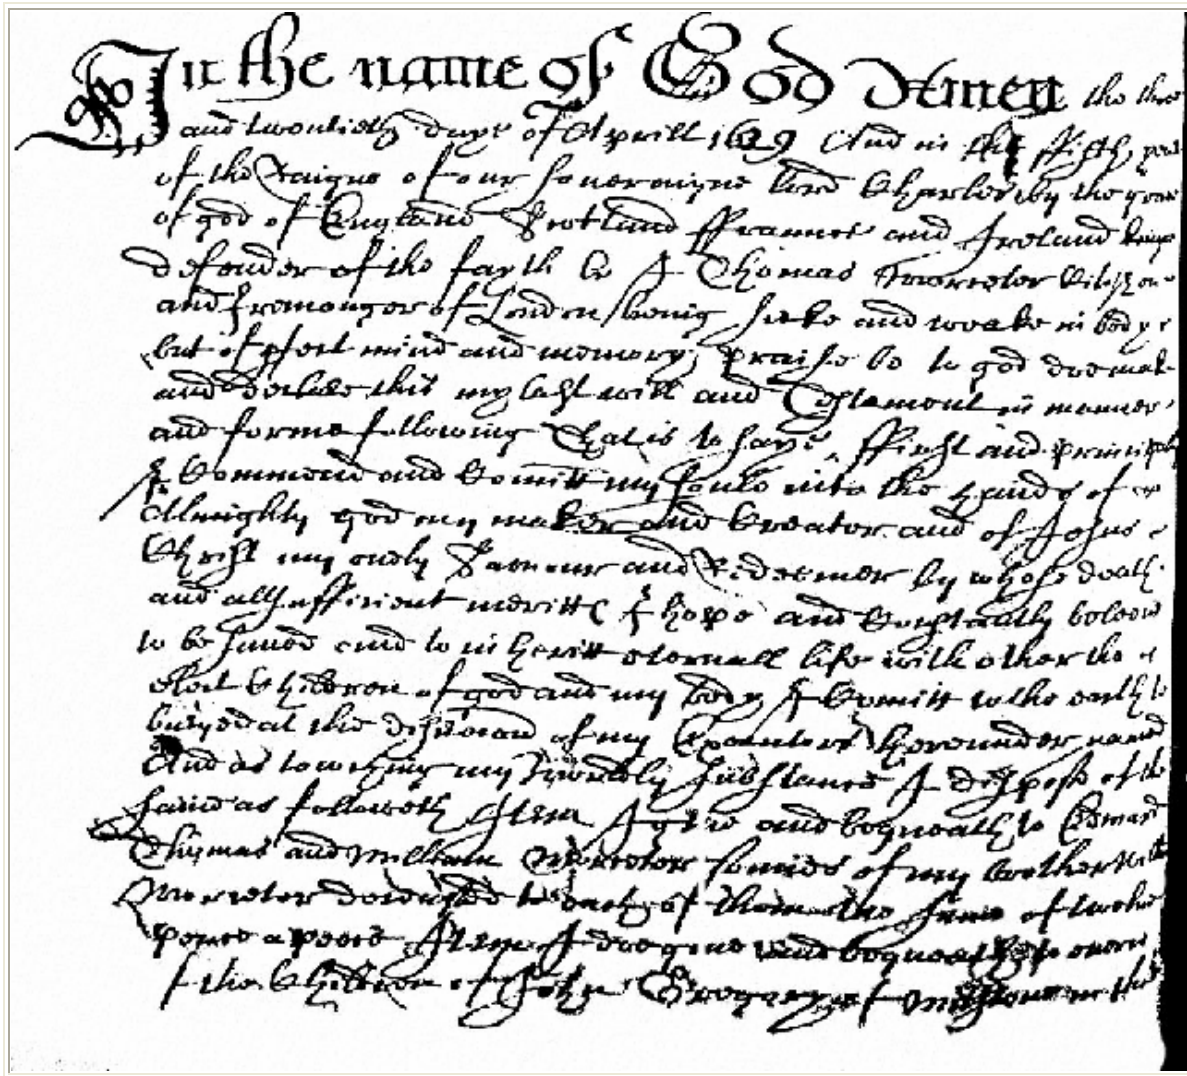 In the name of God Amen the three
and twentieth daye of Aprill 1629 And in the ffifth yeare
of the Raigne of our soveraigne lord Charles by the grace
of god of England Scotland ffraunce and Ireland kinge
defender of the fayth &c I Thomas Worceter Citizen
and Iremonger of London being sicke and weake in body
but of pfect mind and memory praise be to god doe make
and declare this my last will and Testament in manner
and forme following That is to saye, ffirst and principally
I Commend and Comitt my soule into the hands of
Allmighty god my maker and Creator and of Jesus
Christ my onely Saviour and Redeemer by whose death
and allsufficient meritts I hope and Constantly beleeve
to be saved and to inheritt eternall life with other the
elect Children of god and my body I Comitt to the earth to
buryed at the discrecion of my Executors hereunder named
And as towching my worldly substance I dispose of the
same as followeth Item I give and bequeath to Edward
Thomas and William Worceter sonnes of my brother
Worceter deceased to each of them the sume of twelve
pence a peece Item I doe give and bequeath to every
of the Children of John Gregory of in the